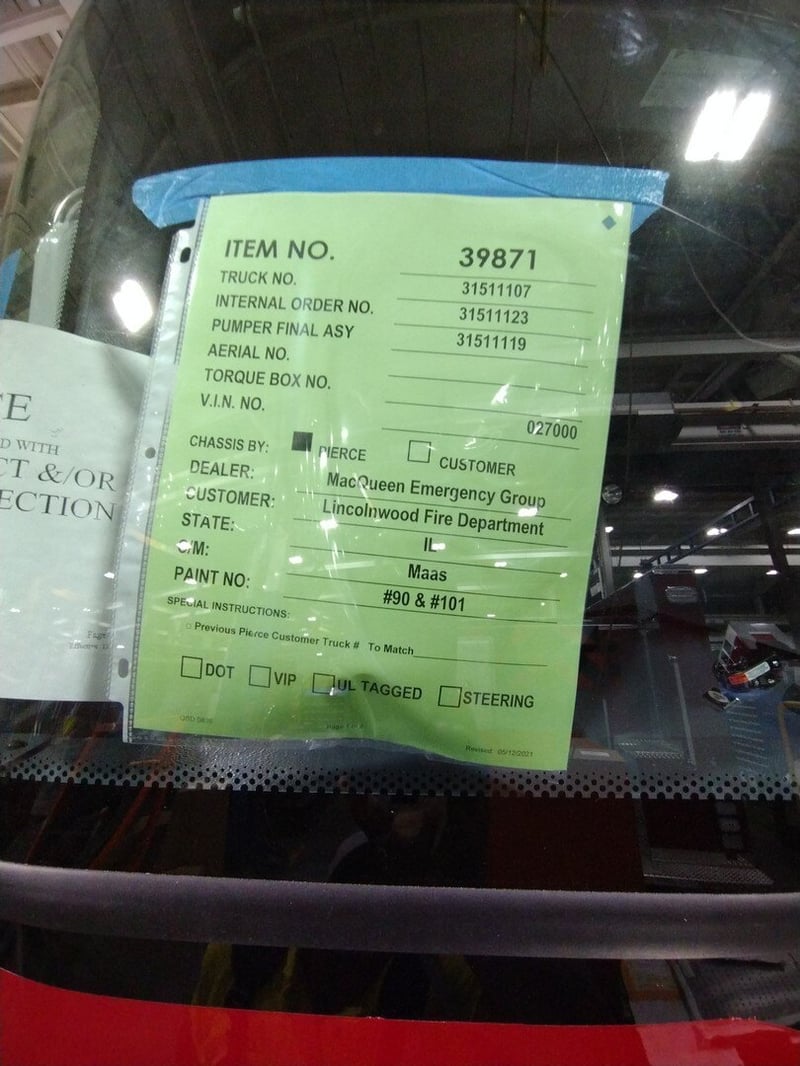 ITEM NO. 39871
TRUCK NO. 31511107
INTERNAL ORDER NO. 31511123
PUMPER FINAL ASY 31511119
AERIAL NO.
TORQUE BOX NO.
V.I.N. NO. 027000
CHASSIS BY: PIERCE CUSTOMER
DEALER: MacQueen Emergency Group
CUSTOMER: Lincolnwood Fire Department
STATE: IL
C/M: Maas
PAINT NO: #90 & #101
SPECIAL INSTRUCTIONS:
Previous Pierce Customer Truck # To Match
DOT VIP UL TAGGED STEERING
Revised 05/12/2021
CE
D WITH
CT &/OR
ECTION
Page